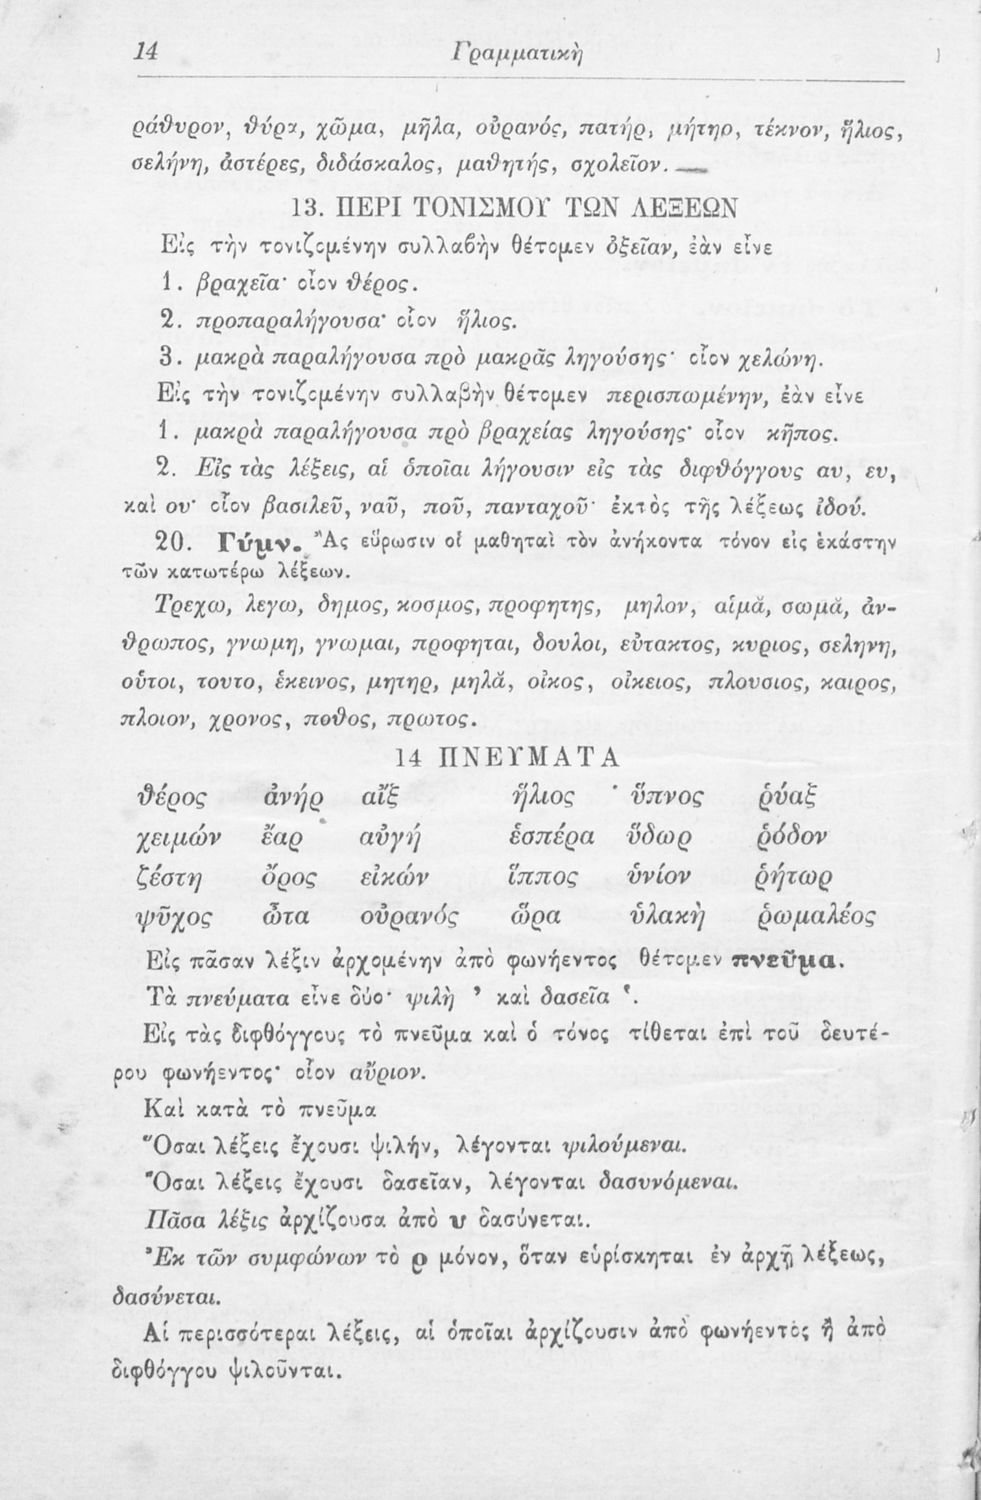 14 Γραμματικὴ
ράθυρον, θύρα, χῶμα, μῆλα, οὐρανός, πατήρ, μήτηρ, τέκνον, ἥλιος,
σελήνη, ἀστέρες, διδάσκαλος, μαθητής, σχολεῖον. —
13. ΠΕΡΙ ΤΟΝΙΣΜΟΥ ΤΩΝ ΛΕΞΕΩΝ
Εἰς τὴν τονιζομένην συλλαβὴν θέτομεν ὀξεῖαν, ἐὰν εἶνε
1. βραχεῖα· οἷον θέρος.
2. προπαραλήγουσα· οἷον ἥλιος.
3. μακρὰ παραλήγουσα πρὸ μακρᾶς ληγούσης· οἷον χελώνη.
Εἰς τὴν τονιζομένην συλλαβὴν θέτομεν περισπωμένην, ἐὰν εἶνε
1. μακρὰ παραλήγουσα πρὸ βραχείας ληγούσης· οἷον κῆπος.
2. Εἰς τὰς λέξεις, αἱ ὁποῖαι λήγουσιν εἰς τὰς διφθόγγους αυ, ευ,
καὶ ου· οἷον βασιλεῦ, ναῦ, ποῦ, πανταχοῦ· ἐκτὸς τῆς λέξεως ἰδού.
20. Γύμν. Ἂς εὕρωσιν οἱ μαθηταὶ τὸν ἀνήκοντα τόνον εἰς ἑκάστην
τῶν κατωτέρω λέξεων.
Τρεχω, λεγω, δημος, κοσμος, προφητης, μηλον, αἱμᾰ, σωμᾰ, ἀν-
θρωπος, γνωμη, γνωμαι, προφηται, δουλοι, εὐτακτος, κυριος, σεληνη,
οὑτοι, τουτο, ἐκεινος, μητηρ, μηλᾰ, οἰκος, οἰκειος, πλουσιος, καιρος,
πλοιον, χρονος, ποθος, πρωτος.
14 ΠΝΕΥΜΑΤΑ
θέρος ἀνήρ αἴξ ἥλιος ὕπνος ῥύαξ
χειμών ἔαρ αὐγή ἑσπέρα ὕδωρ ῥόδον
ζέστη ὄρος εἰκών ἵππος ὑνίον ῥήτωρ
ψῦχος ὦτα οὐρανός ὥρα ὑλακὴ ῥωμαλέος
Εἰς πᾶσαν λέξιν ἀρχομένην ἀπὸ φωνήεντος θέτομεν πνεῦμα.
Τὰ πνεύματα εἶνε δύο· ψιλὴ ᾿ καὶ δασεῖα ῾.
Εἰς τὰς διφθόγγους τὸ πνεῦμα καὶ ὁ τόνος τίθεται ἐπὶ τοῦ δευτέ-
ρου φωνήεντος· οἷον αὔριον.
Καὶ κατὰ τὸ πνεῦμα
Ὅσαι λέξεις ἔχουσι ψιλήν, λέγονται ψιλούμεναι.
Ὅσαι λέξεις ἔχουσι δασεῖαν, λέγονται δασυνόμεναι.
Πᾶσα λέξις ἀρχίζουσα ἀπὸ υ δασύνεται.
Ἐκ τῶν συμφώνων τὸ ρ μόνον, ὅταν εὑρίσκηται ἐν ἀρχῇ λέξεως,
δασύνεται.
Αἱ περισσότεραι λέξεις, αἱ ὁποῖαι ἀρχίζουσιν ἀπὸ φωνήεντος ἢ ἀπὸ
διφθόγγου ψιλοῦνται.